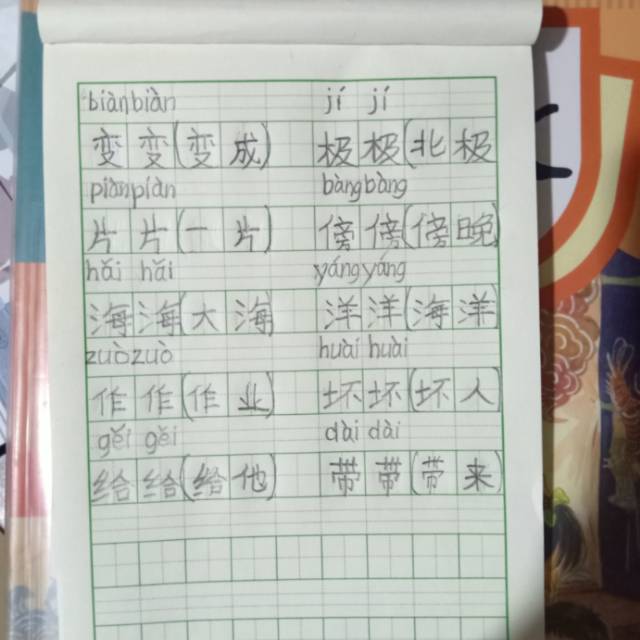 biànbiàn jí jí
变变(变成) 极极(北极
piànpiàn bàngbàng
片片(一片) 傍傍(傍晚)
hǎi hǎi yángyáng
海海(大海) 洋洋(海洋)
zuòzuò huài huài
作作(作业) 坏坏(坏人)
gěi gěi dài dài
给给(给他) 带带(带来)